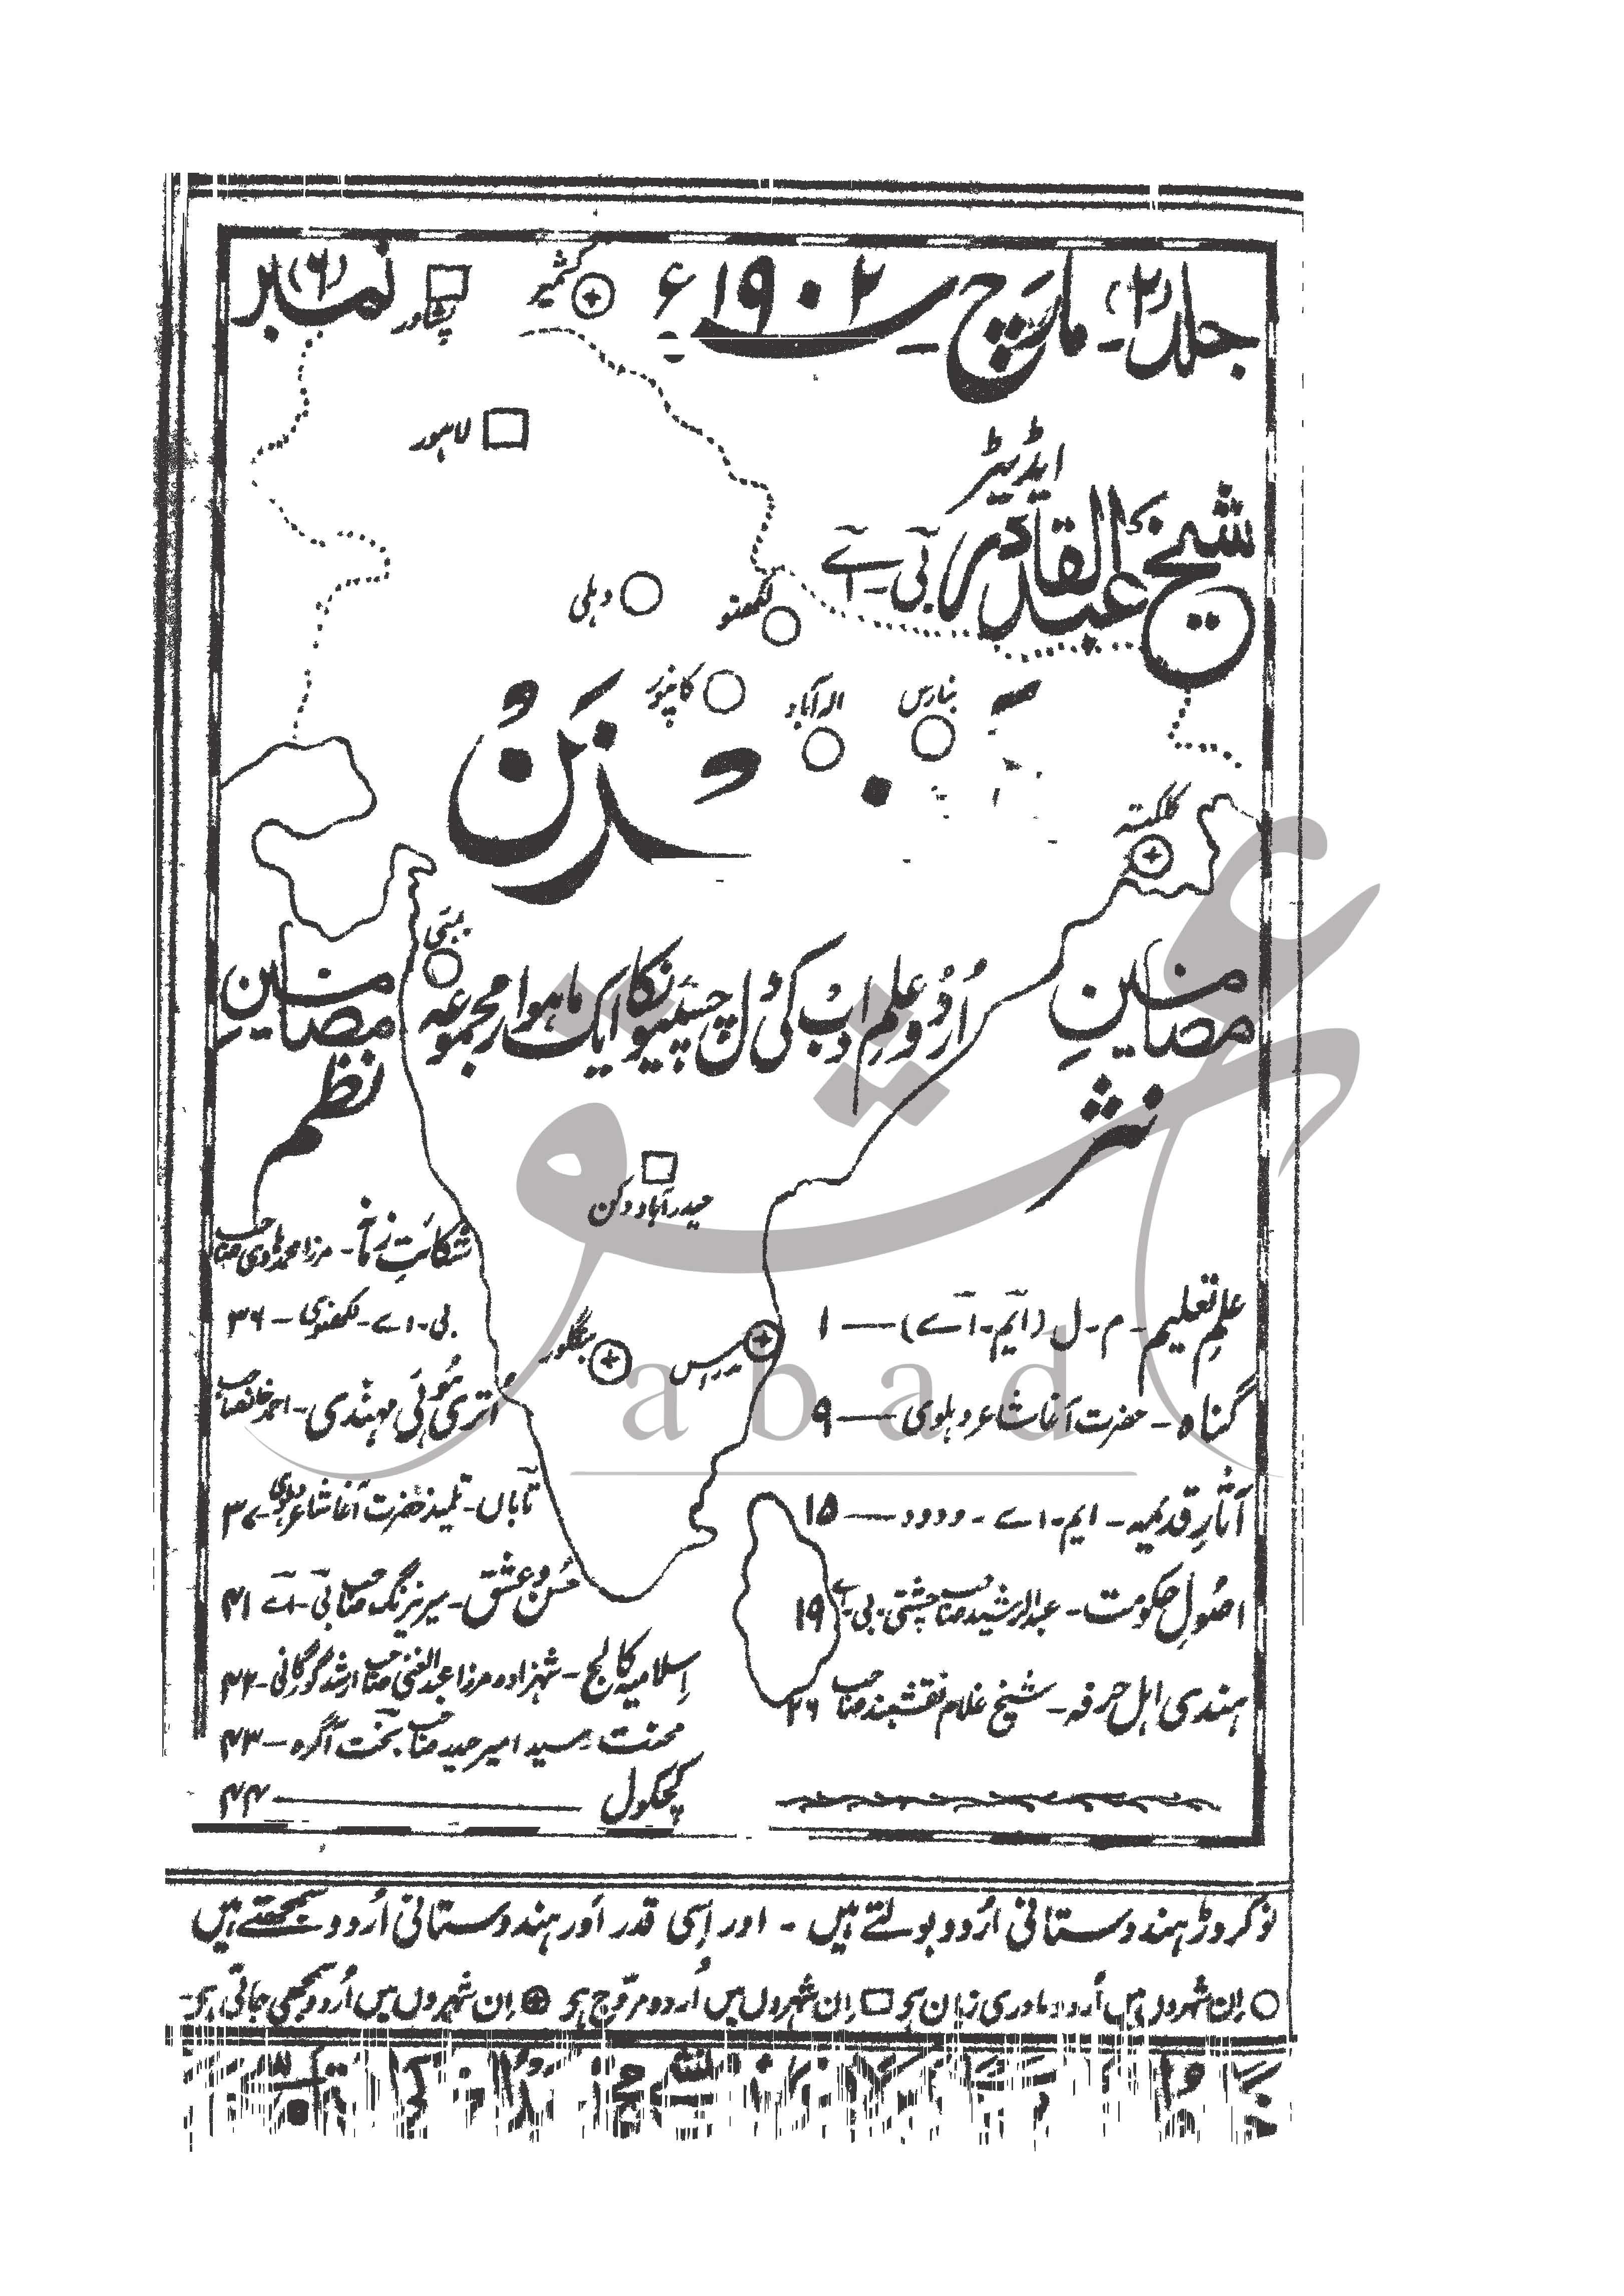 جلد (۲) مارچ سنہ ۱۹۰۲ء نمبر (۶)
کشمیر
پشاور
لاہور
ایڈیٹر
شیخ عبدالقادر بی۔اے
دہلی
لکھنؤ
کانپور
الہ آباد
بنارس
مخزن
کلکتہ
بمبئی
اُردو علم ادب کی دلچسپیوں کا ایک ماہوار مجموعہ
حیدرآباد دکن
بنگلور
مدراس
مضامینِ
نثر
علمِ تعلیم - م - ل (ایم - اے) — ۱
گناہ - حضرت آغا شاعر دہلوی — ۹
آثارِ قدیمہ - ایم - اے - ودود — ۱۵
اصولِ حکومت - عبدالرشید صاحب چشتی بی - اے ۱۹
ہندی اہلِ حرفہ - شیخ غلام نقشبند صاحب ۲۶
مضامینِ
نظم
شکایتِ زمانہ - مرزا محمد ہادی صاحب
بی - اے - لکھنوی — ۳۶
اُتری ہوئی مہندی - احمد خانصاحب
تاباں - تلمیذ حضرت آغا شاعر دہلوی ۳۷
حُسن و عشق - میر نیرنگ صاحب بی - اے ۴۱
اسلامیہ کالج - شہزادہ مرزا عبدالغنی صاحب ارشد گورگانی - ۴۲
محنت - سید امیر حیدر صاحب بخت آگرہ — ۴۳
کچکول — ۴۴
نو کروڑ ہندوستانی اُردو بولتے ہیں - اور اِسی قدر اَور ہندوستانی اُردو سمجھتے ہیں
○ اِن شہروں میں اُردو مادری زبان ہے □ اِن شہروں میں اُردو مروّج ہے ⊕ اِن شہروں میں اُردو سمجھی جاتی ہے -
abad